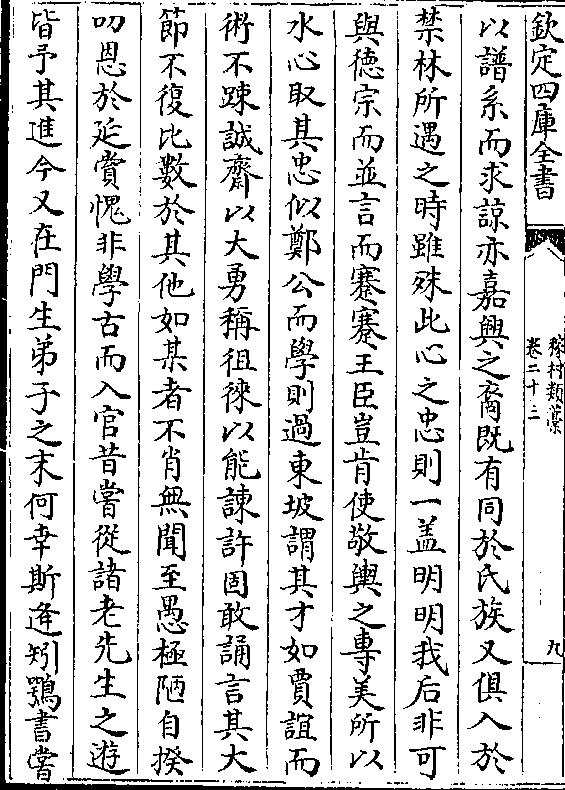 欽定四庫全書
稼村類藁
卷二十二
九
以譜系而求諒亦嘉興之裔既有同於氏族又俱入於
禁林所遇之時雖殊此心之忠則一盖明明我后非可
與徳宗而並言而蹇蹇王臣豈肯使敬輿之專美所以
水心取其忠似鄭公而學則過東坡謂其才如賈誼而
術不踈誠齋以大勇稱徂徠以能諫許固敢誦言其大
節不復比數於其他如某者不肖無聞至愚極陋自揆
叨恩於延賞愧非學古而入官昔嘗從諸老先生之遊
皆予其進今又在門生弟子之末何幸斯逢矧鶚書嘗